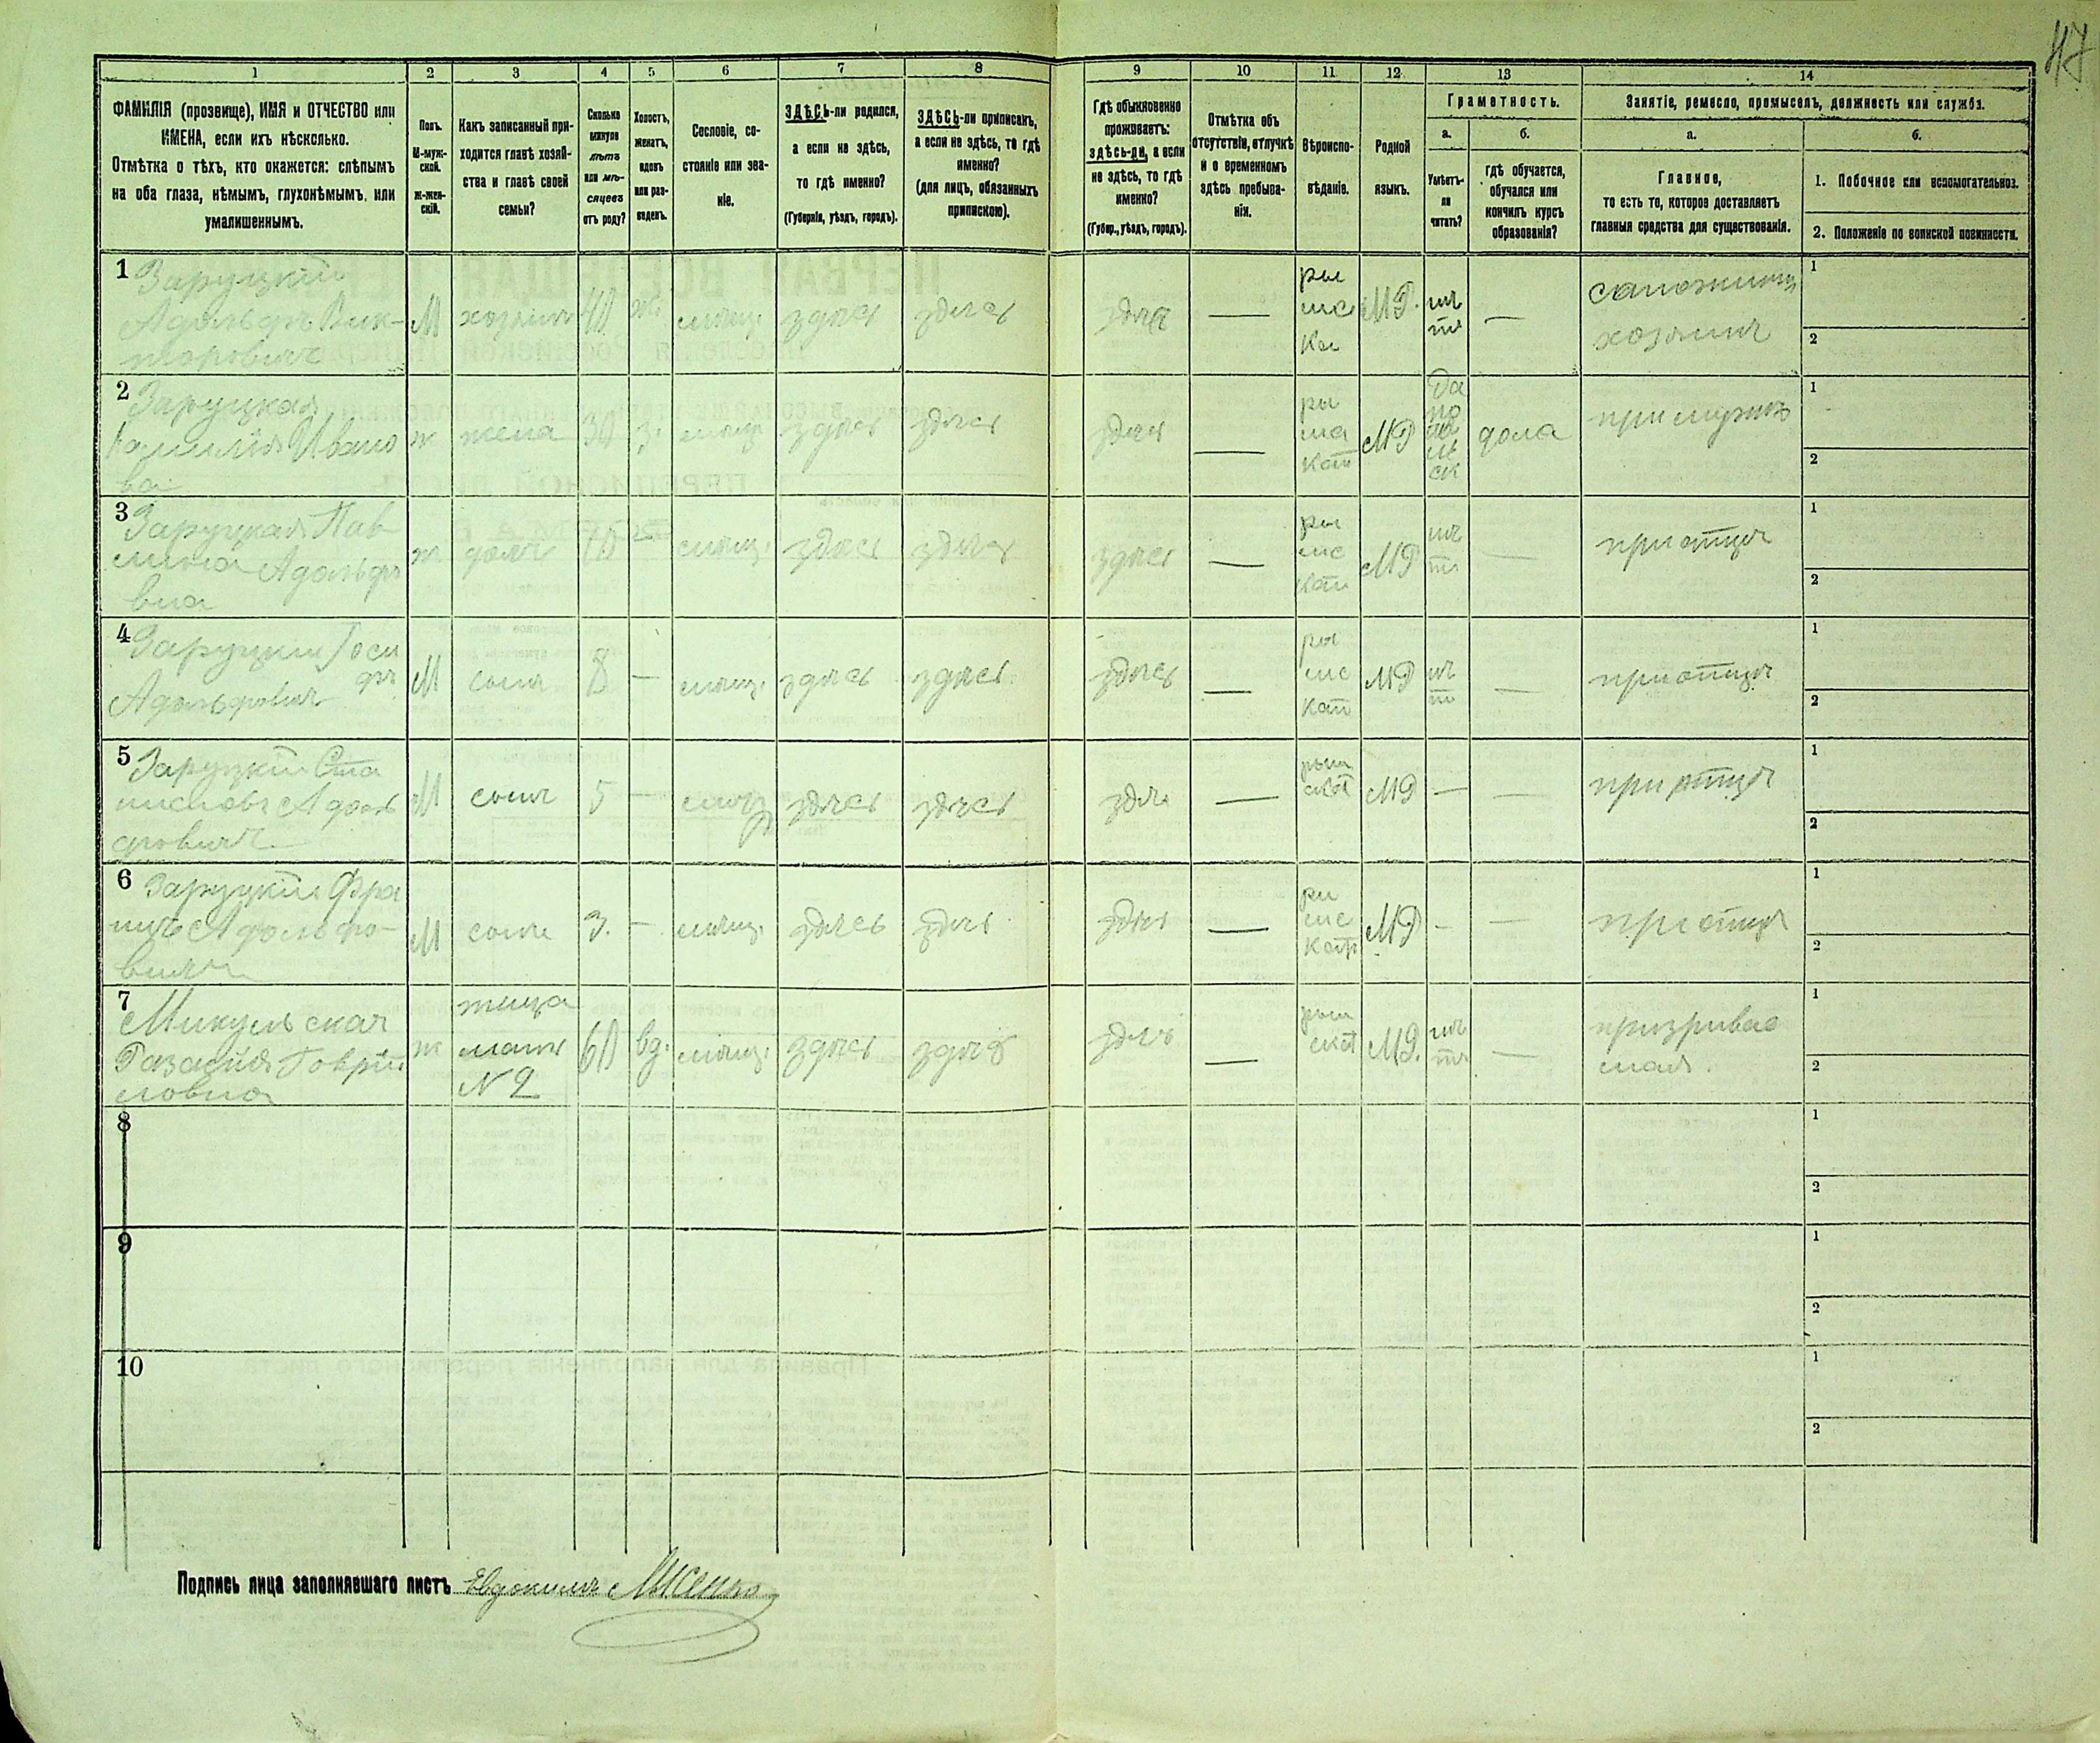 47
1 2 3 4 5 6 7 8 9 10 11 12 13 14
ФАМИЛІЯ (прозвище), ИМЯ и ОТЧЕСТВО или
ИМЕНА, если ихъ нѣсколько.
Отмѣтка о тѣхъ, кто окажется: слѣпымъ
на оба глаза, нѣмымъ, глухонѣмымъ, или
умалишеннымъ.
Полъ.
М-муж-
ской.
Ж-жен-
скій.
Какъ записанный при-
ходится главѣ хозяй-
ства и главѣ своей
семьи?
Сколько
минуло
лѣтъ
или мѣ-
сяцевъ
отъ роду?
Холостъ,
женатъ,
вдовъ
или раз-
веденъ.
Сословіе, со-
стояніе или зва-
ніе.
ЗДѢСЬ-ли родился,
а если не здѣсь,
то гдѣ именно?
(Губернія, уѣздъ, городъ).
ЗДѢСЬ-ли приписанъ,
а если не здѣсь, то гдѣ
именно?
(для лицъ, обязанныхъ
припискою).
Гдѣ обыкновенно
проживаетъ:
здѣсь-ли, а если
не здѣсь, то гдѣ
именно?
(Губер., уѣздъ, городъ).
Отмѣтка объ
отсутствіи, отлучкѣ
и о временномъ
здѣсь пребыва-
ніи.
Вѣроиспо-
вѣданіе.
Родной
языкъ.
Грамотность.
а.
Умѣетъ-
ли
читать?
б.
Гдѣ обучается,
обучался или
кончилъ курсъ
образованія?
Занятіе, ремесло, промыселъ, должность или служба.
а.
Главное,
то есть то, которое доставляетъ
главныя средства для существованія.
б.
1. Побочное или вспомогательное.
2. Положеніе по воинской повинности.
1
Заруцкій
Адольфъ Вик-
торовичъ
М
хозяинъ
40
ж.
мѣщ.
здѣсь
здѣсь
здѣсь
—
МР.
нѣ
тъ
—
хозяинъ
1
2
2
Заруцкая
Ивано
ва
ж
жена
30
з.
мѣщ.
здѣсь
здѣсь
здѣсь
—
ри
ма
кат
МР
Да
по
поль
ск
дома
при мужѣ
1
2
3
Заруцкая Пав
лина Адольфо
вна
ж
дочь
10
—
мѣщ.
здѣсь
здѣсь
здѣсь
—
МР
нѣ
тъ
—
при отцѣ
1
2
4
Заруцкій Іоси
фъ
Адольфовичъ
М
сынъ
8
—
мѣщ.
здѣсь
здѣсь
здѣсь
—
МР
нѣ
тъ
—
при отцѣ
1
2
5
Заруцкій Ста
ниславъ Адоль
фовичъ
М
сынъ
5
—
мѣщ
здѣсь
здѣсь
здѣсь
—
МР
—
—
при отцѣ
1
2
6
Заруцкій Фра
нцъ Адольфо-
вичъ
М
сынъ
3.
—
мѣщ.
здѣсь
здѣсь
здѣсь
—
МР
-
—
при отцѣ
1
2
7
Микульская
ловна
ж
мать
№ 2
60
вд.
мѣщ.
здѣсь
здѣсь
здѣсь
—
МР.
нѣ
тъ
—
призривае
мая.
1
2
8
1
2
9
1
2
10
1
2
Подпись лица заполнявшаго листъ Евдокимъ